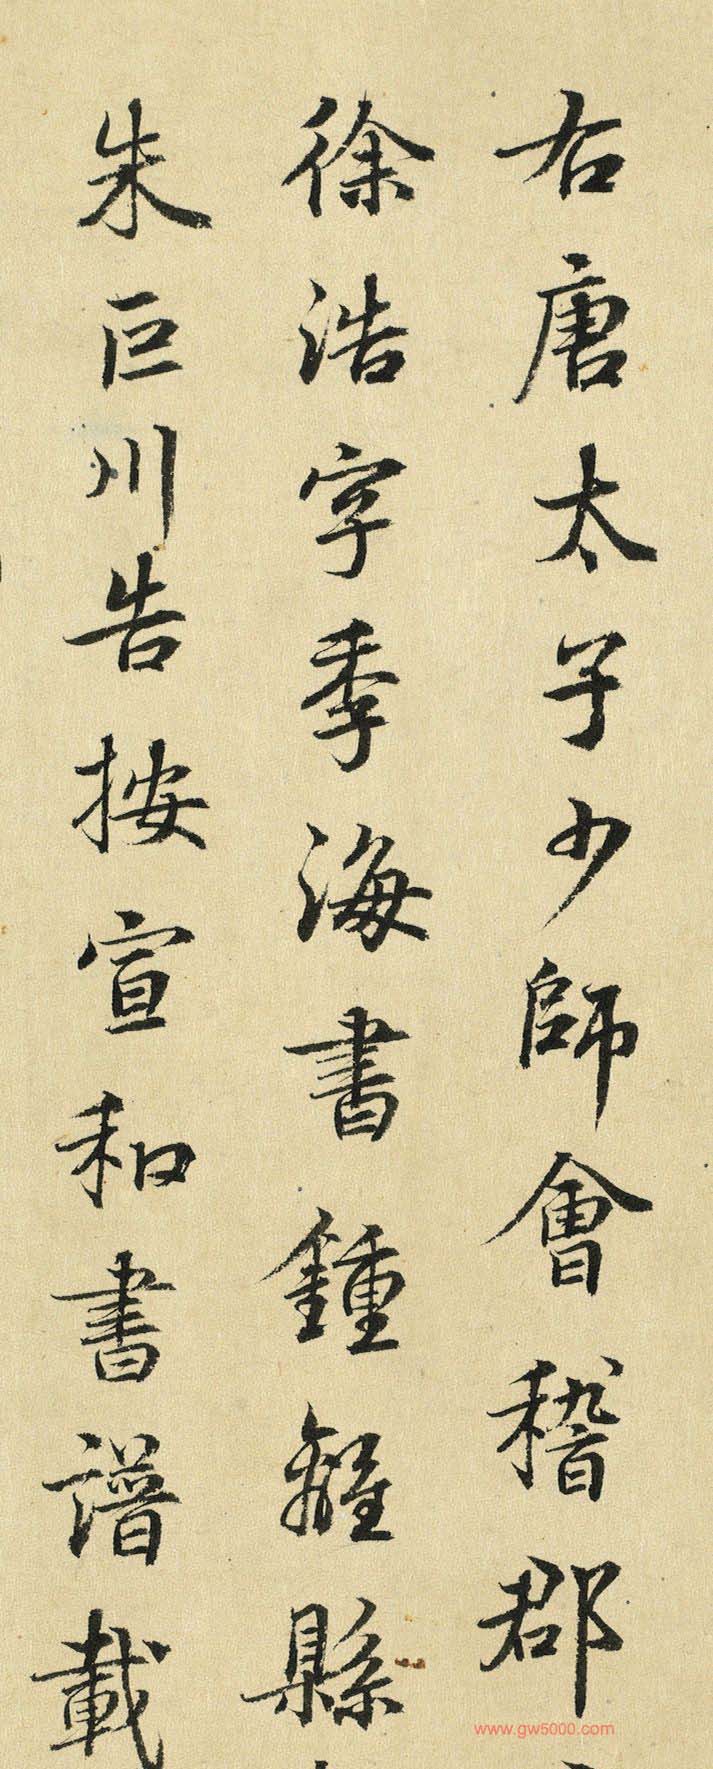 右唐太子少師會稽郡
徐浩字季海書鍾離縣
朱巨川告按宣和書譜載
www.gw5000.com